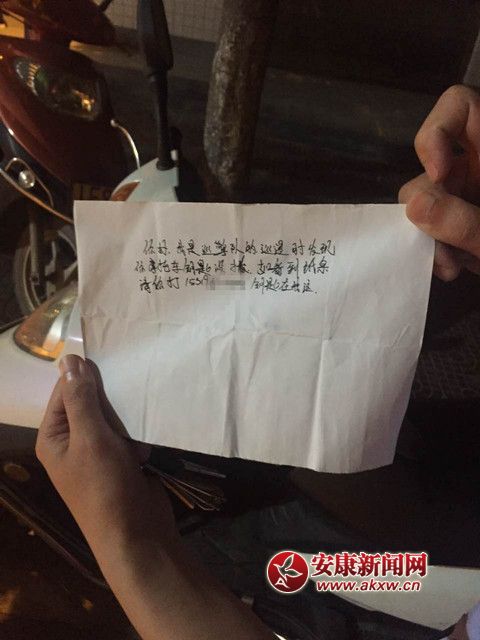 你好, 我是巡逻队的巡逻时发现
你摩托车钥匙没拔, 如看到此条
请你打 1559 钥匙在我这.
安康新闻网
www.akxw.cn